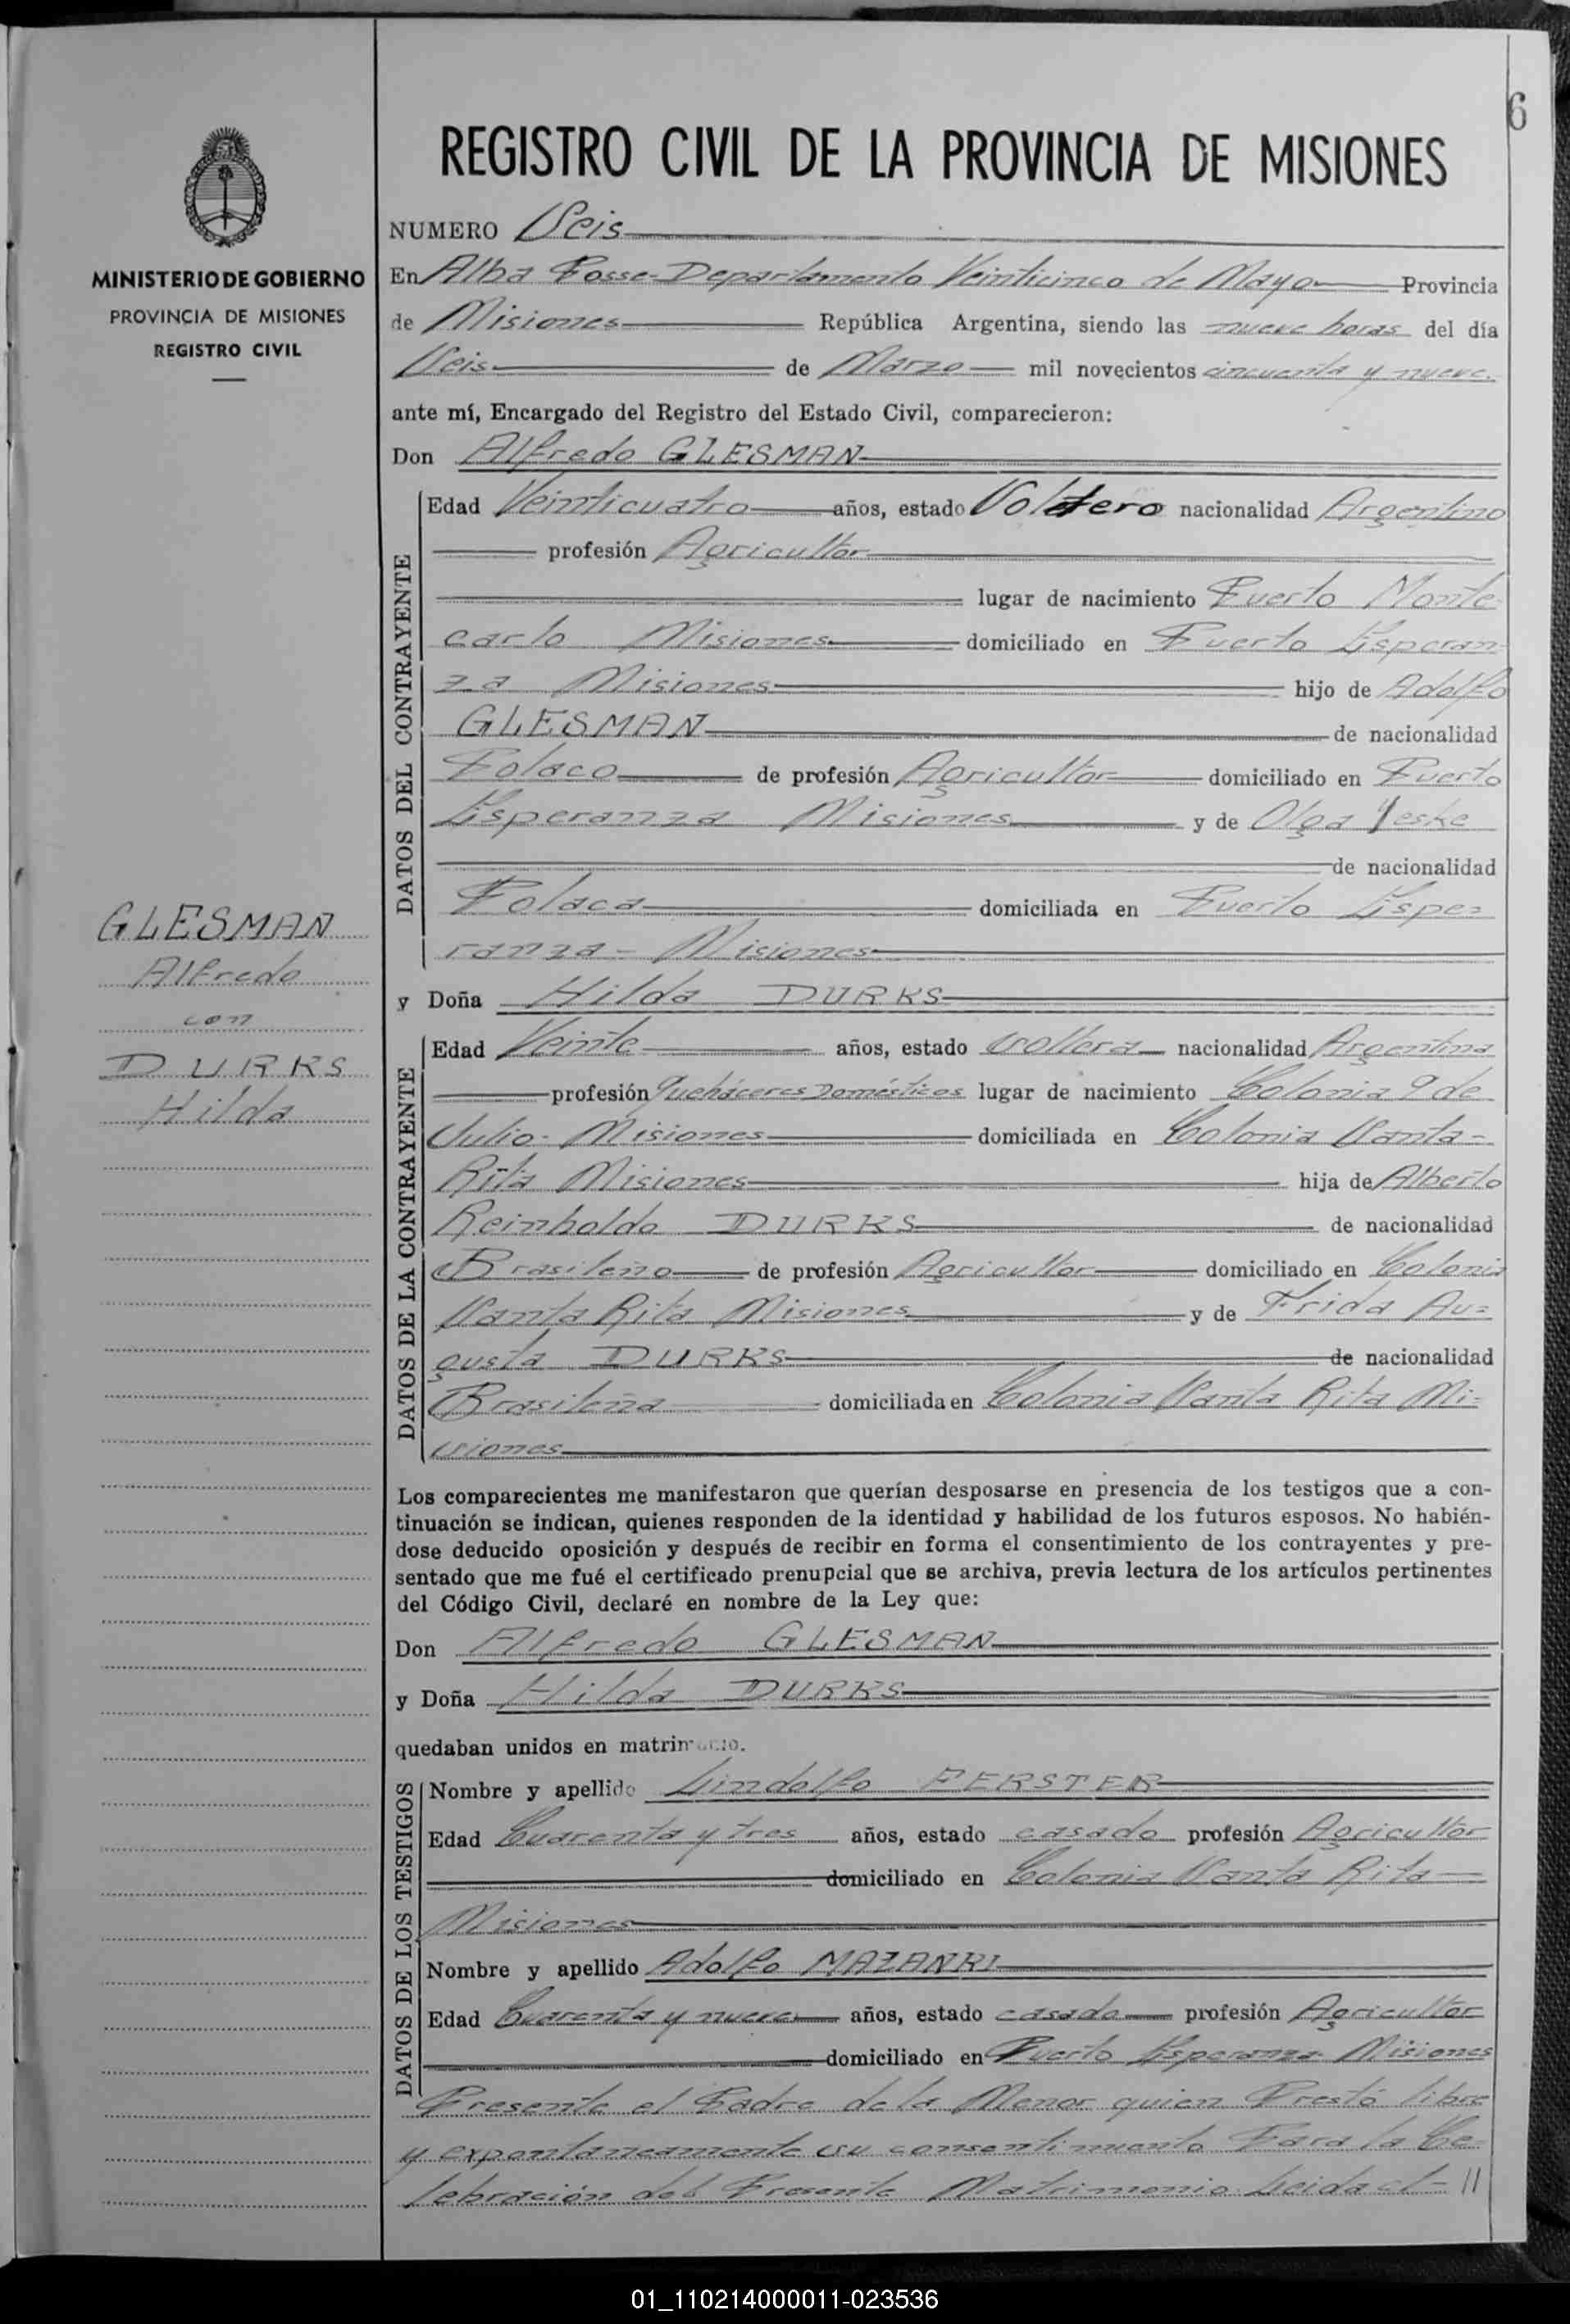 6
REGISTRO CIVIL DE LA PROVINCIA DE MISIONES
MINISTERIO DE GOBIERNO
PROVINCIA DE MISIONES
REGISTRO CIVIL
NUMERO Seis
En Alba Posse-Departamento Veinticinco de Mayo Provincia
de Misiones República Argentina, siendo las nueve horas del día
Seis de Marzo mil novecientos cincuenta y nueve.
ante mí, Encargado del Registro del Estado Civil, comparecieron:
Don Alfredo GLESMAN
DATOS DEL CONTRAYENTE
Edad Veinticuatro años, estado Soltero nacionalidad Argentino
profesión Agricultor
lugar de nacimiento Puerto Monte-
carlo Misiones domiciliado en Puerto Esperan
za Misiones hijo de Adolfo
GLESMAN de nacionalidad
Polaco de profesión Agricultor domiciliado en Puerto
Esperanza Misiones y de Olga Yeske
de nacionalidad
Polaca domiciliada en Puerto Espe=
ranza - Misiones
GLESMAN
Alfredo
con
DURKS
Hilda
y Doña Hilda DURKS
DATOS DE LA CONTRAYENTE
Edad Veinte años, estado soltera nacionalidad Argentina
profesión Quehaceres Domésticos lugar de nacimiento Colonia 9 de
Julio - Misiones domiciliada en Colonia Santa -
Rita Misiones hija de Alberto
Reinholdo DURKS de nacionalidad
Brasileño de profesión Agricultor domiciliado en Colonia
Santa Rita Misiones y de Frida Au=
gusta DURKS de nacionalidad
Brasileña domiciliada en Colonia Santa Rita Mi=
siones
Los comparecientes me manifestaron que querían desposarse en presencia de los testigos que a con-
tinuación se indican, quienes responden de la identidad y habilidad de los futuros esposos. No habién-
dose deducido oposición y después de recibir en forma el consentimiento de los contrayentes y pre-
sentado que me fué el certificado prenupcial que se archiva, previa lectura de los artículos pertinentes
del Código Civil, declaré en nombre de la Ley que:
Don Alfredo GLESMAN
y Doña Hilda DURKS
quedaban unidos en matrimonio.
DATOS DE LOS TESTIGOS
Nombre y apellido Lindolfo FERSTER
Edad Cuarenta y tres años, estado casado profesión Agricultor
domiciliado en Colonia Santa Rita -
Misiones
Nombre y apellido Adolfo MAZANKI
Edad Cuarenta y nueve años, estado casado profesión Agricultor
domiciliado en Puerto Esperanza Misiones
Presente el Padre de la Menor quien Prestó libre
y expontaneamente su consentimiento Para la Ce
lebración del Presente Matrimonio Leida el - //
01_110214000011-023536